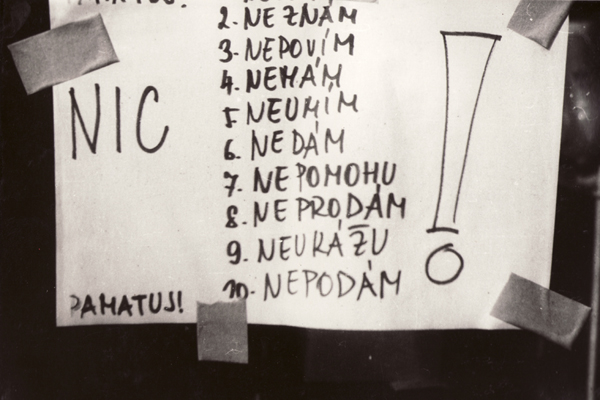 NIC
PAMATUJ!
2. NEZNÁM
3. NEPOVÍM
4. NEMÁM
5. NEUMÍM
6. NEDÁM
7. NEPOMOHU
8. NEPRODÁM
9. NEUKÁŽU
10. NEPODÁM
!